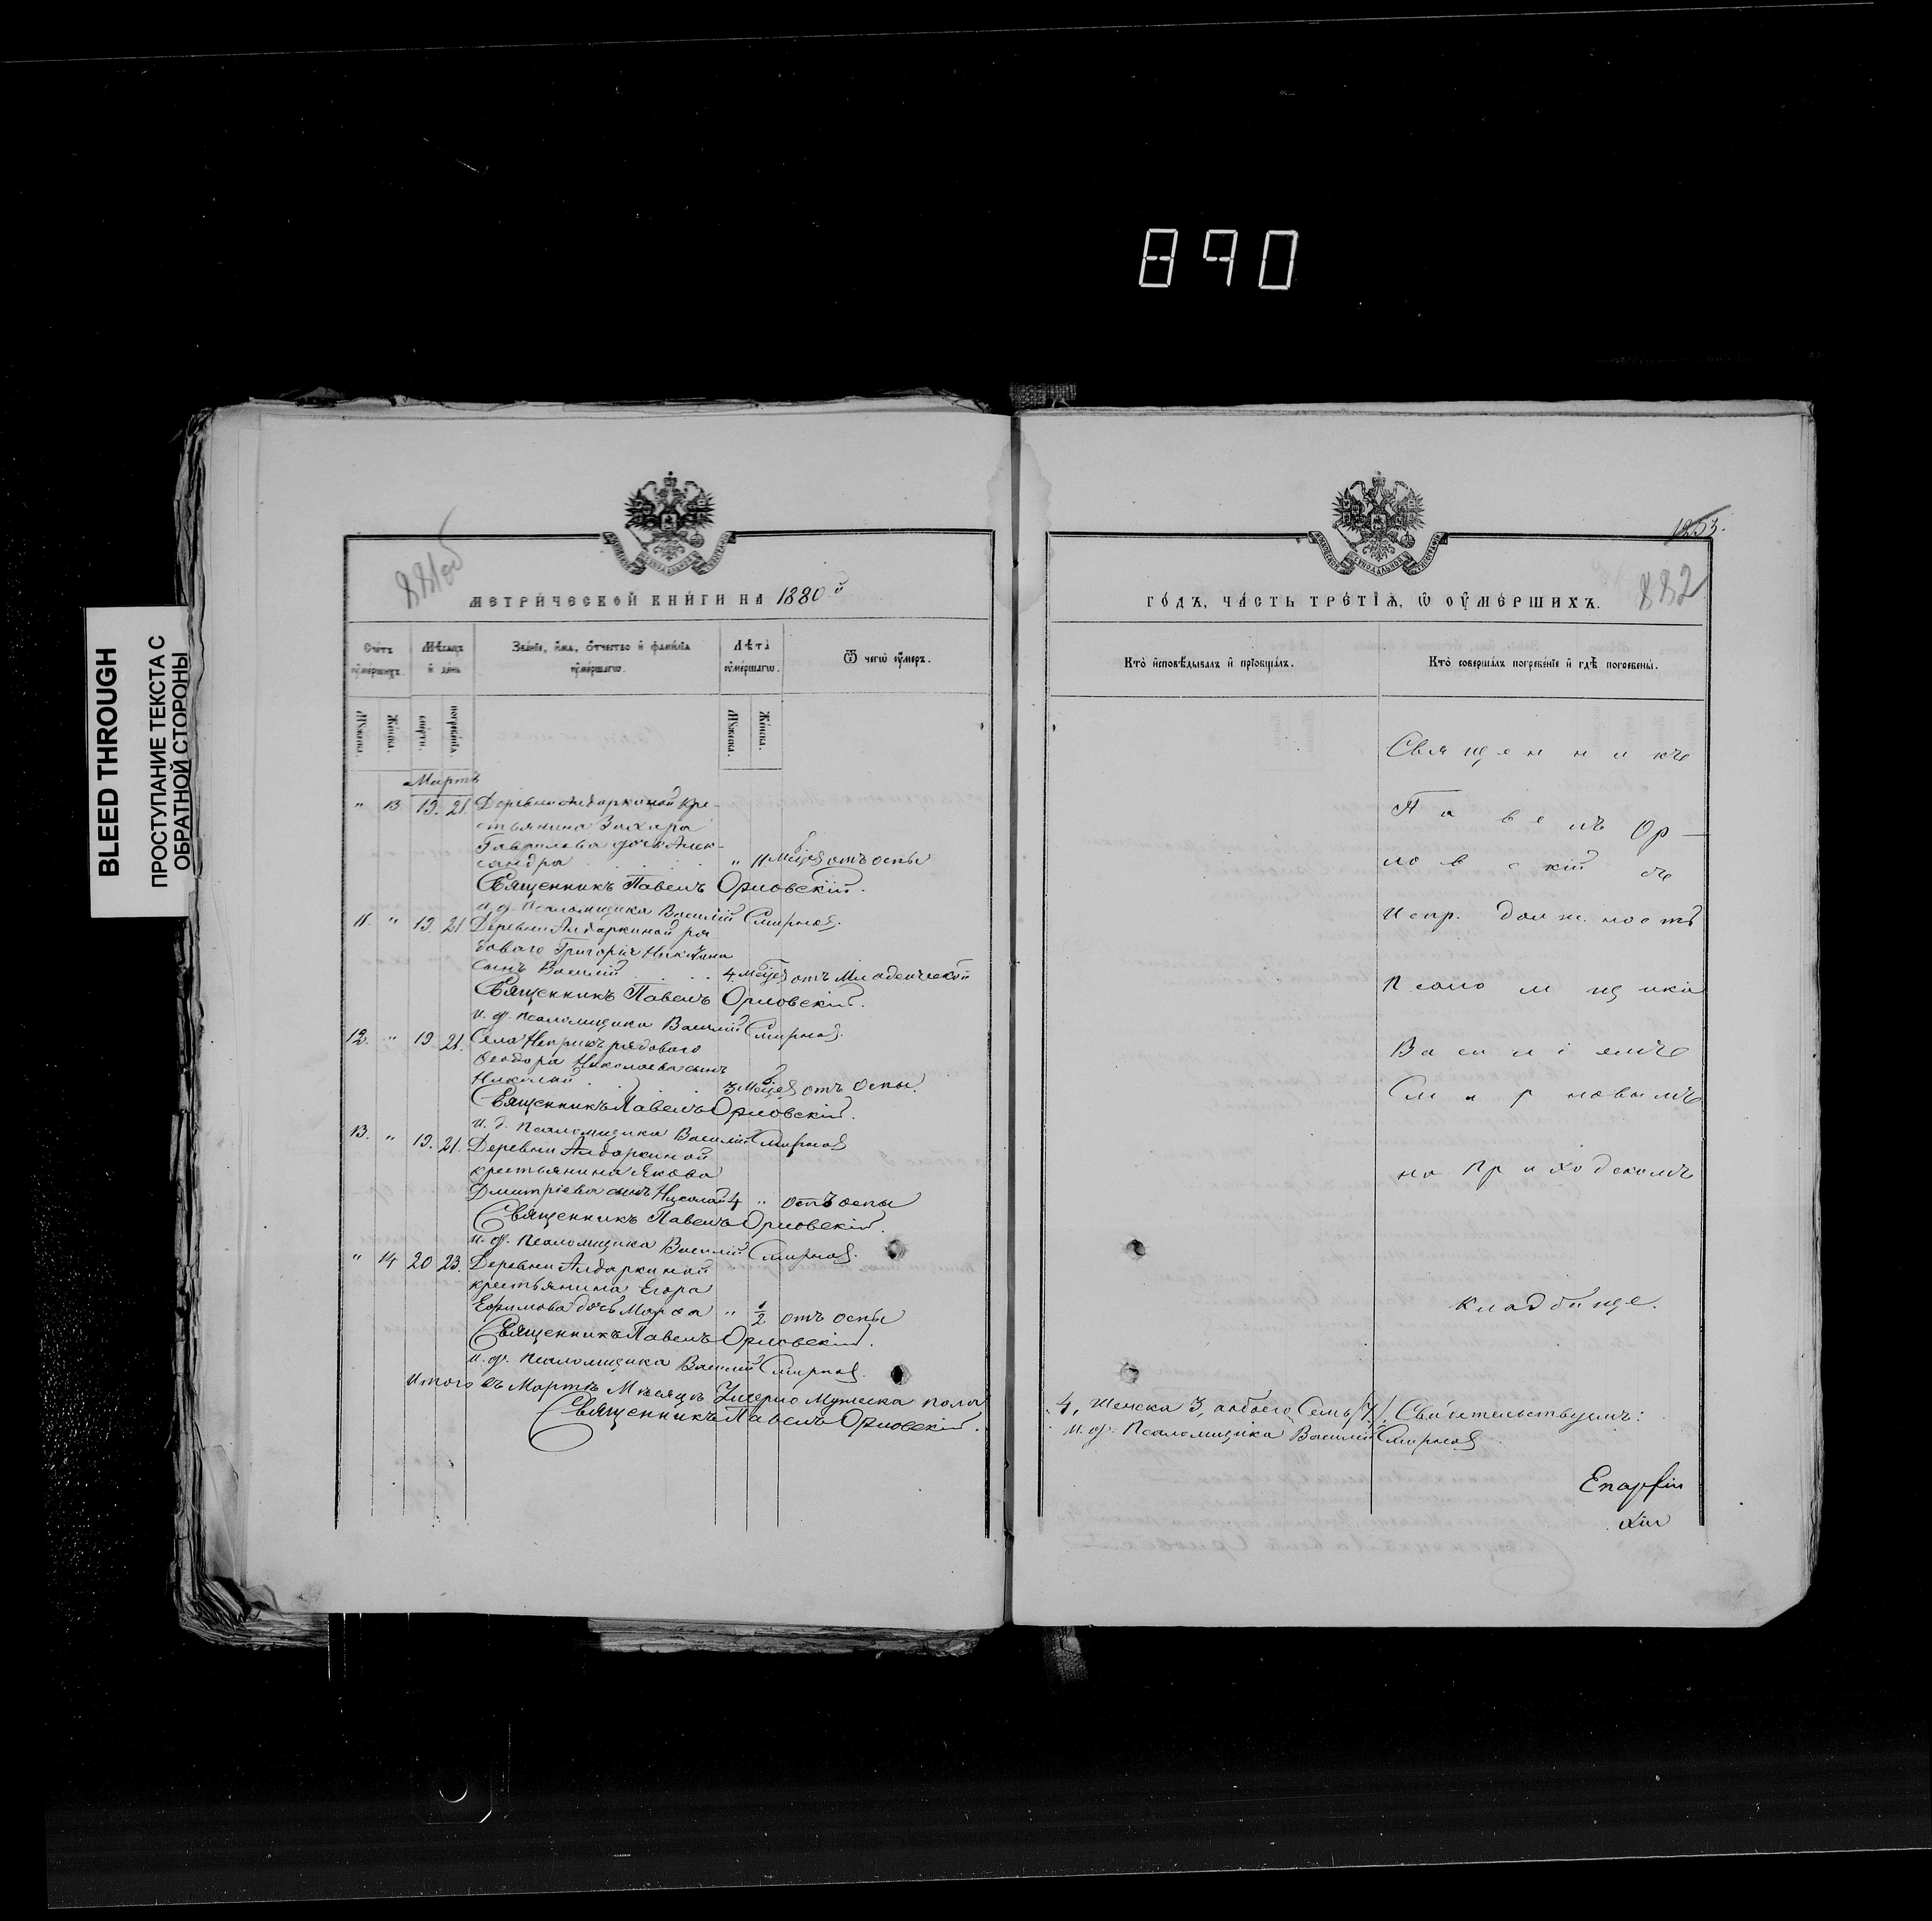 890
BLEED THROUGH
ПРОСТУПАНИЕ ТЕКСТА С
ОБРАТНОЙ СТОРОНЫ
881об
МЕТРИ́ЧЕСКОЙ КНИ́ГИ НА 1880й
Сче́тъ ᲂумершихъ.
Мѣсяцъ и день
Зва́нїе, и́мя, ѻ҆́тчество и҆ фами́лїа ᲂу҆ме́ршагѡ.
Лѣта̀ ᲂу҆ме́ршагѡ.
Ѿ чегѡ̀ ᲂу҆́меръ.
Мꙋжеска.
Же́нска.
сме́рти.
погребе́нїѧ.
Мꙋжеска.
Же́нска.
Мартъ
" 13 19. 21. Деревни Алдаркиной кре-
стьянина Захара
Гаврилова дочь Алек-
сандра " 11 мѣсяц. отъ оспы
Священникъ Павелъ Орловскій.
и. д. псаломщика Василій Смирнов.
11. " 19. 21. Деревни Алдаркиной ря
доваго Григорія Никитина
сынъ Василій 4 мѣсяц. отъ Младенческой
Священникъ Павелъ Орловскій.
и. д. псаломщика Василій Смирнов.
12. " 19 21. Села Неприкъ рядоваго
Ѳеодора Николаева сынъ
Николай 3 мѣсяц. отъ Оспы.
Священникъ Павелъ Орловскій.
и. д. псаломщика Василій Смирнов
13. " 19. 21. Деревни Алдаркиной
крестьянина Якова
Дмитріева сынъ Николай 4 " отъ оспы
Священникъ Павелъ Орловскій.
и. д. псаломщика Василій Смирнов.
" 14 20 23. Деревни Алдаркиной
крестьянина Егора
Ефимова дочь Марѳа " 1/2 отъ оспы
Священникъ Павелъ Орловскій.
и. д. псаломщика Василій Смирнов.
Итого въ Мартѣ Мѣсяцѣ Умерло Мужеска пола
Священникъ Павелъ Орловскій.
1253.
882
ГО́ДЪ, ЧА́СТЬ ТРЕ́ТЇѦ, Ѡ ОУ҆МЕ́РШИХЪ.
Кто̀ и҆сповѣ́дывалъ и҆ прїѡбща́лъ.
Кто̀ соверша́лъ погребе́нїе и҆ гдѣ̀ погребены̀.
Священникъ
Павелъ Ор-
ловскій съ
испр. должность
Псаломщика
Василіемъ
Смирновымъ
на приходскомъ
кладбище.
4, Женска 3, аобоего Семь /7/. Свидѣтельствуемъ:
И. д. Псаломщика Василій Смирнов